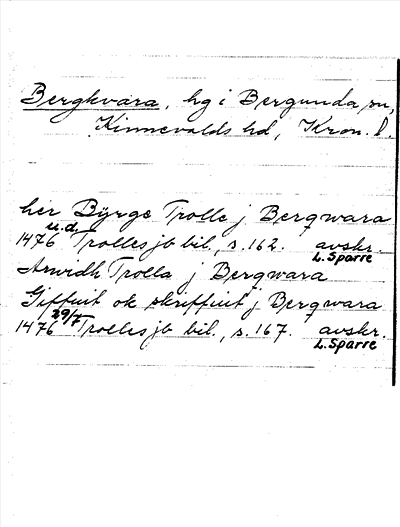 Bergkvara, hg i Bergunda sn,
Kinnevalds hd, Kron. l.
her Byrge Trolle j Bergwara
1476 u.d. Trolles jb bil., s. 162. avskr.
L. Sparre
Arwidh Trolla j Bergwara
Giffuit ok skriffuit j Bergwara
1476 29/7 Trolles jb bil., s. 167. avskr.
L. Sparre